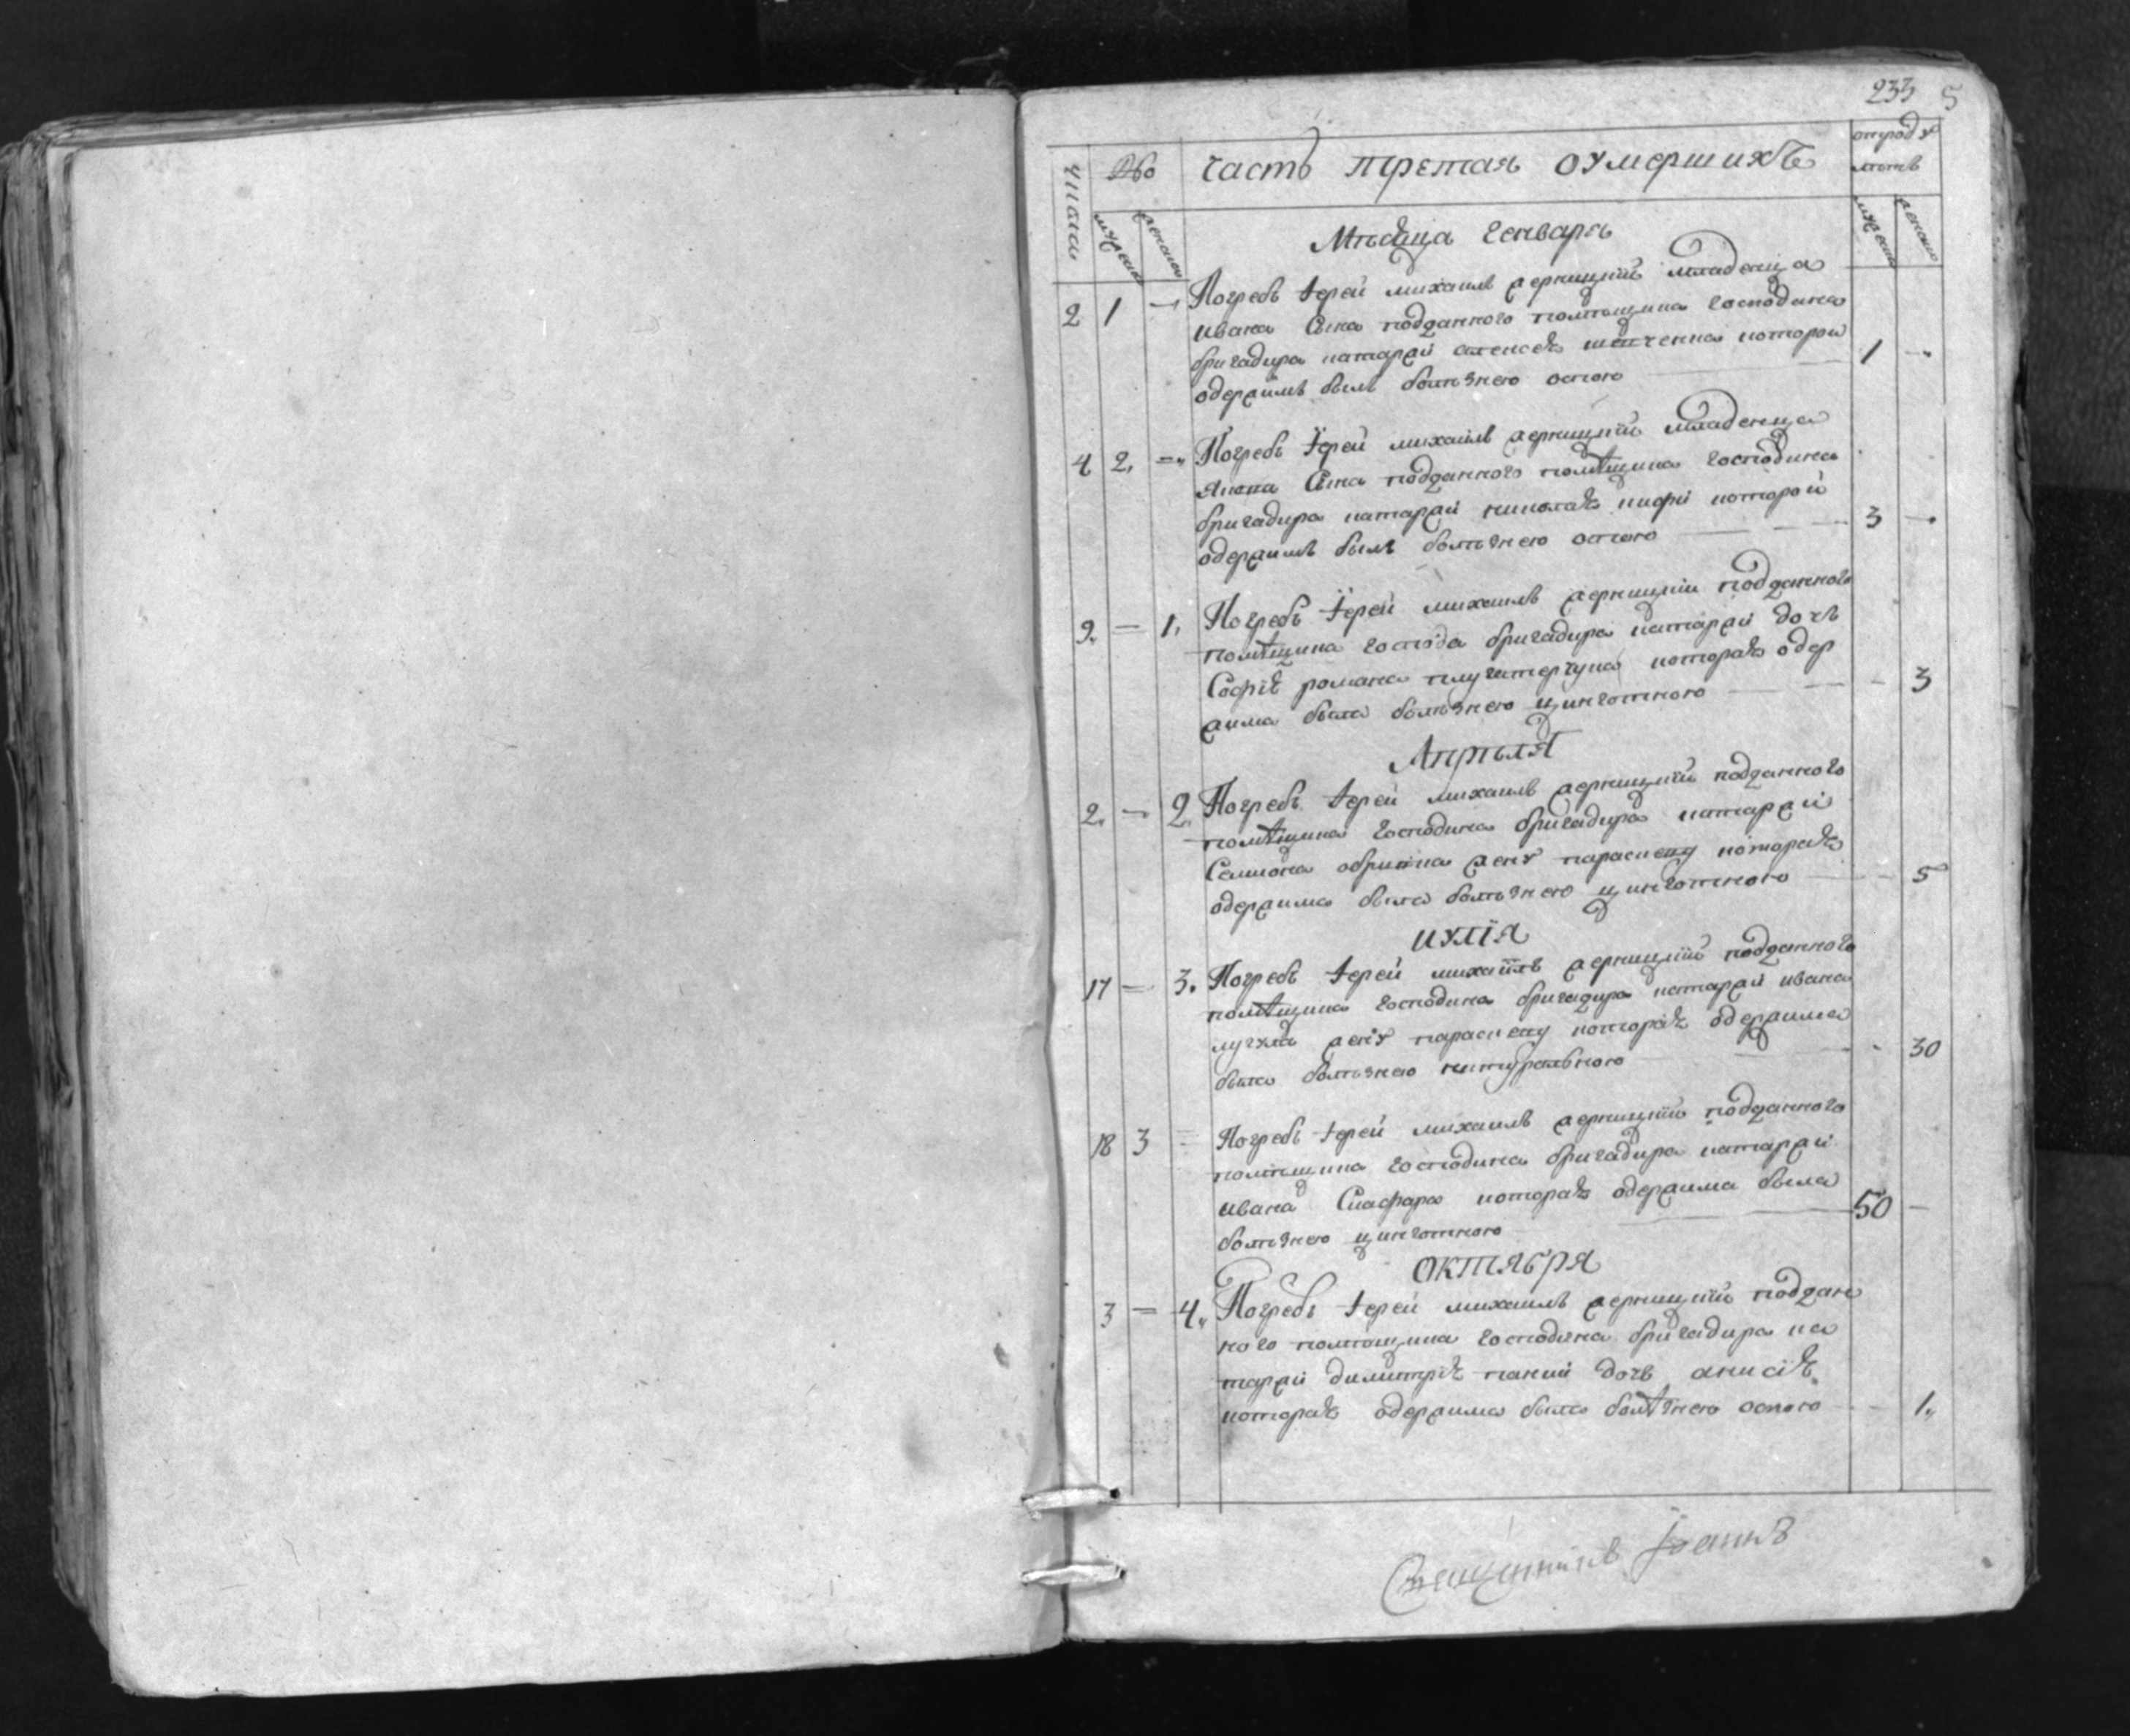 233 5
числа № часть третая оумершихъ отроду летъ
мужеска женска мужеска женска
Мѣсяца генваря
2 1 — Погребъ іерей михаилъ жерницкїй младенца
ивана Сина подданного помѣщика господина
бригадира катаржи алексея шевченка которои
одержимъ билъ болѣзнею оспою 1 —
4 2. — Погребъ іерей михаилъ жерницкїй младенца
Сина подданного помѣщика господина
бригадира катаржи николая которой
одержимъ билъ болѣзнею оспою 3 —
9. — 1. Погребъ іерей михаилъ жерницкїй подданного
помѣщика господа бригадира катаржи дочъ
Софїя романа которая одер
жима била болѣзнею цинготною — 3
Апрѣля
2. — 2. Погребъ іерей михаилъ жерницкїй подданного
помѣщика господина бригадира катаржи
Семиона жену параскеву которая
одержима била болѣзнею цинготною — 5
иулїя
17 — 3. Погребъ іерей михаїлъ жерницкїй подданного
помѣщика господина бригадира катаржи ивана
жену параскеву которая одержима
била болѣзнею натуральною — 30
18 3 = Погребъ іерей михаилъ жерницкїй подданного
помѣщика господина бригадира катаржи
ивана которая одержима била
болѣзнею цинготною 50 —
октября
3 — 4. Погребъ іерей михаилъ жерницкїй поддан
ного помѣщика господина бригадира ка
таржи димитрїя дочъ анисїя
которая одержима била болѣзнею оспою — 1.
Священникъ Іоаннъ